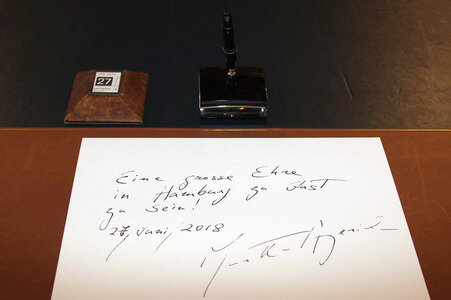 27
Eine grosse Ehre
in Hamburg zu Gast
zu sein!
27, Juni, 2018